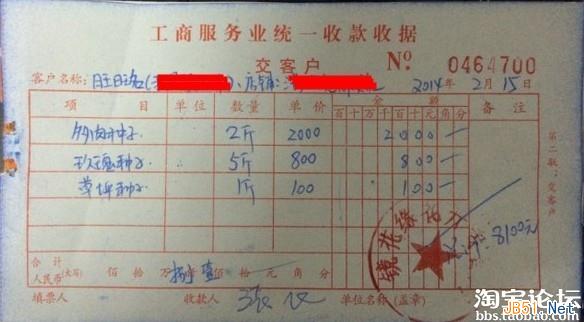 工商服务业统一收款收据
交客户 No 0464700
客户名称: 旺旺名( )、店铺: 2014年2月15日
项目 单位 数量 单价 金额 备注
百十万千百十元角分
多肉种子 2斤 2000 2000—
玫瑰种子 5斤 800 800—
草坪种子 1斤 100 100—
8100元
合计
人民币(大写) 佰 拾 万 捌仟 壹佰 拾 元 角 分
填票人 收款人 单位名称(盖章)
第二联:交客户
淘宝论坛
bbs.taobao.com
JB51.Net